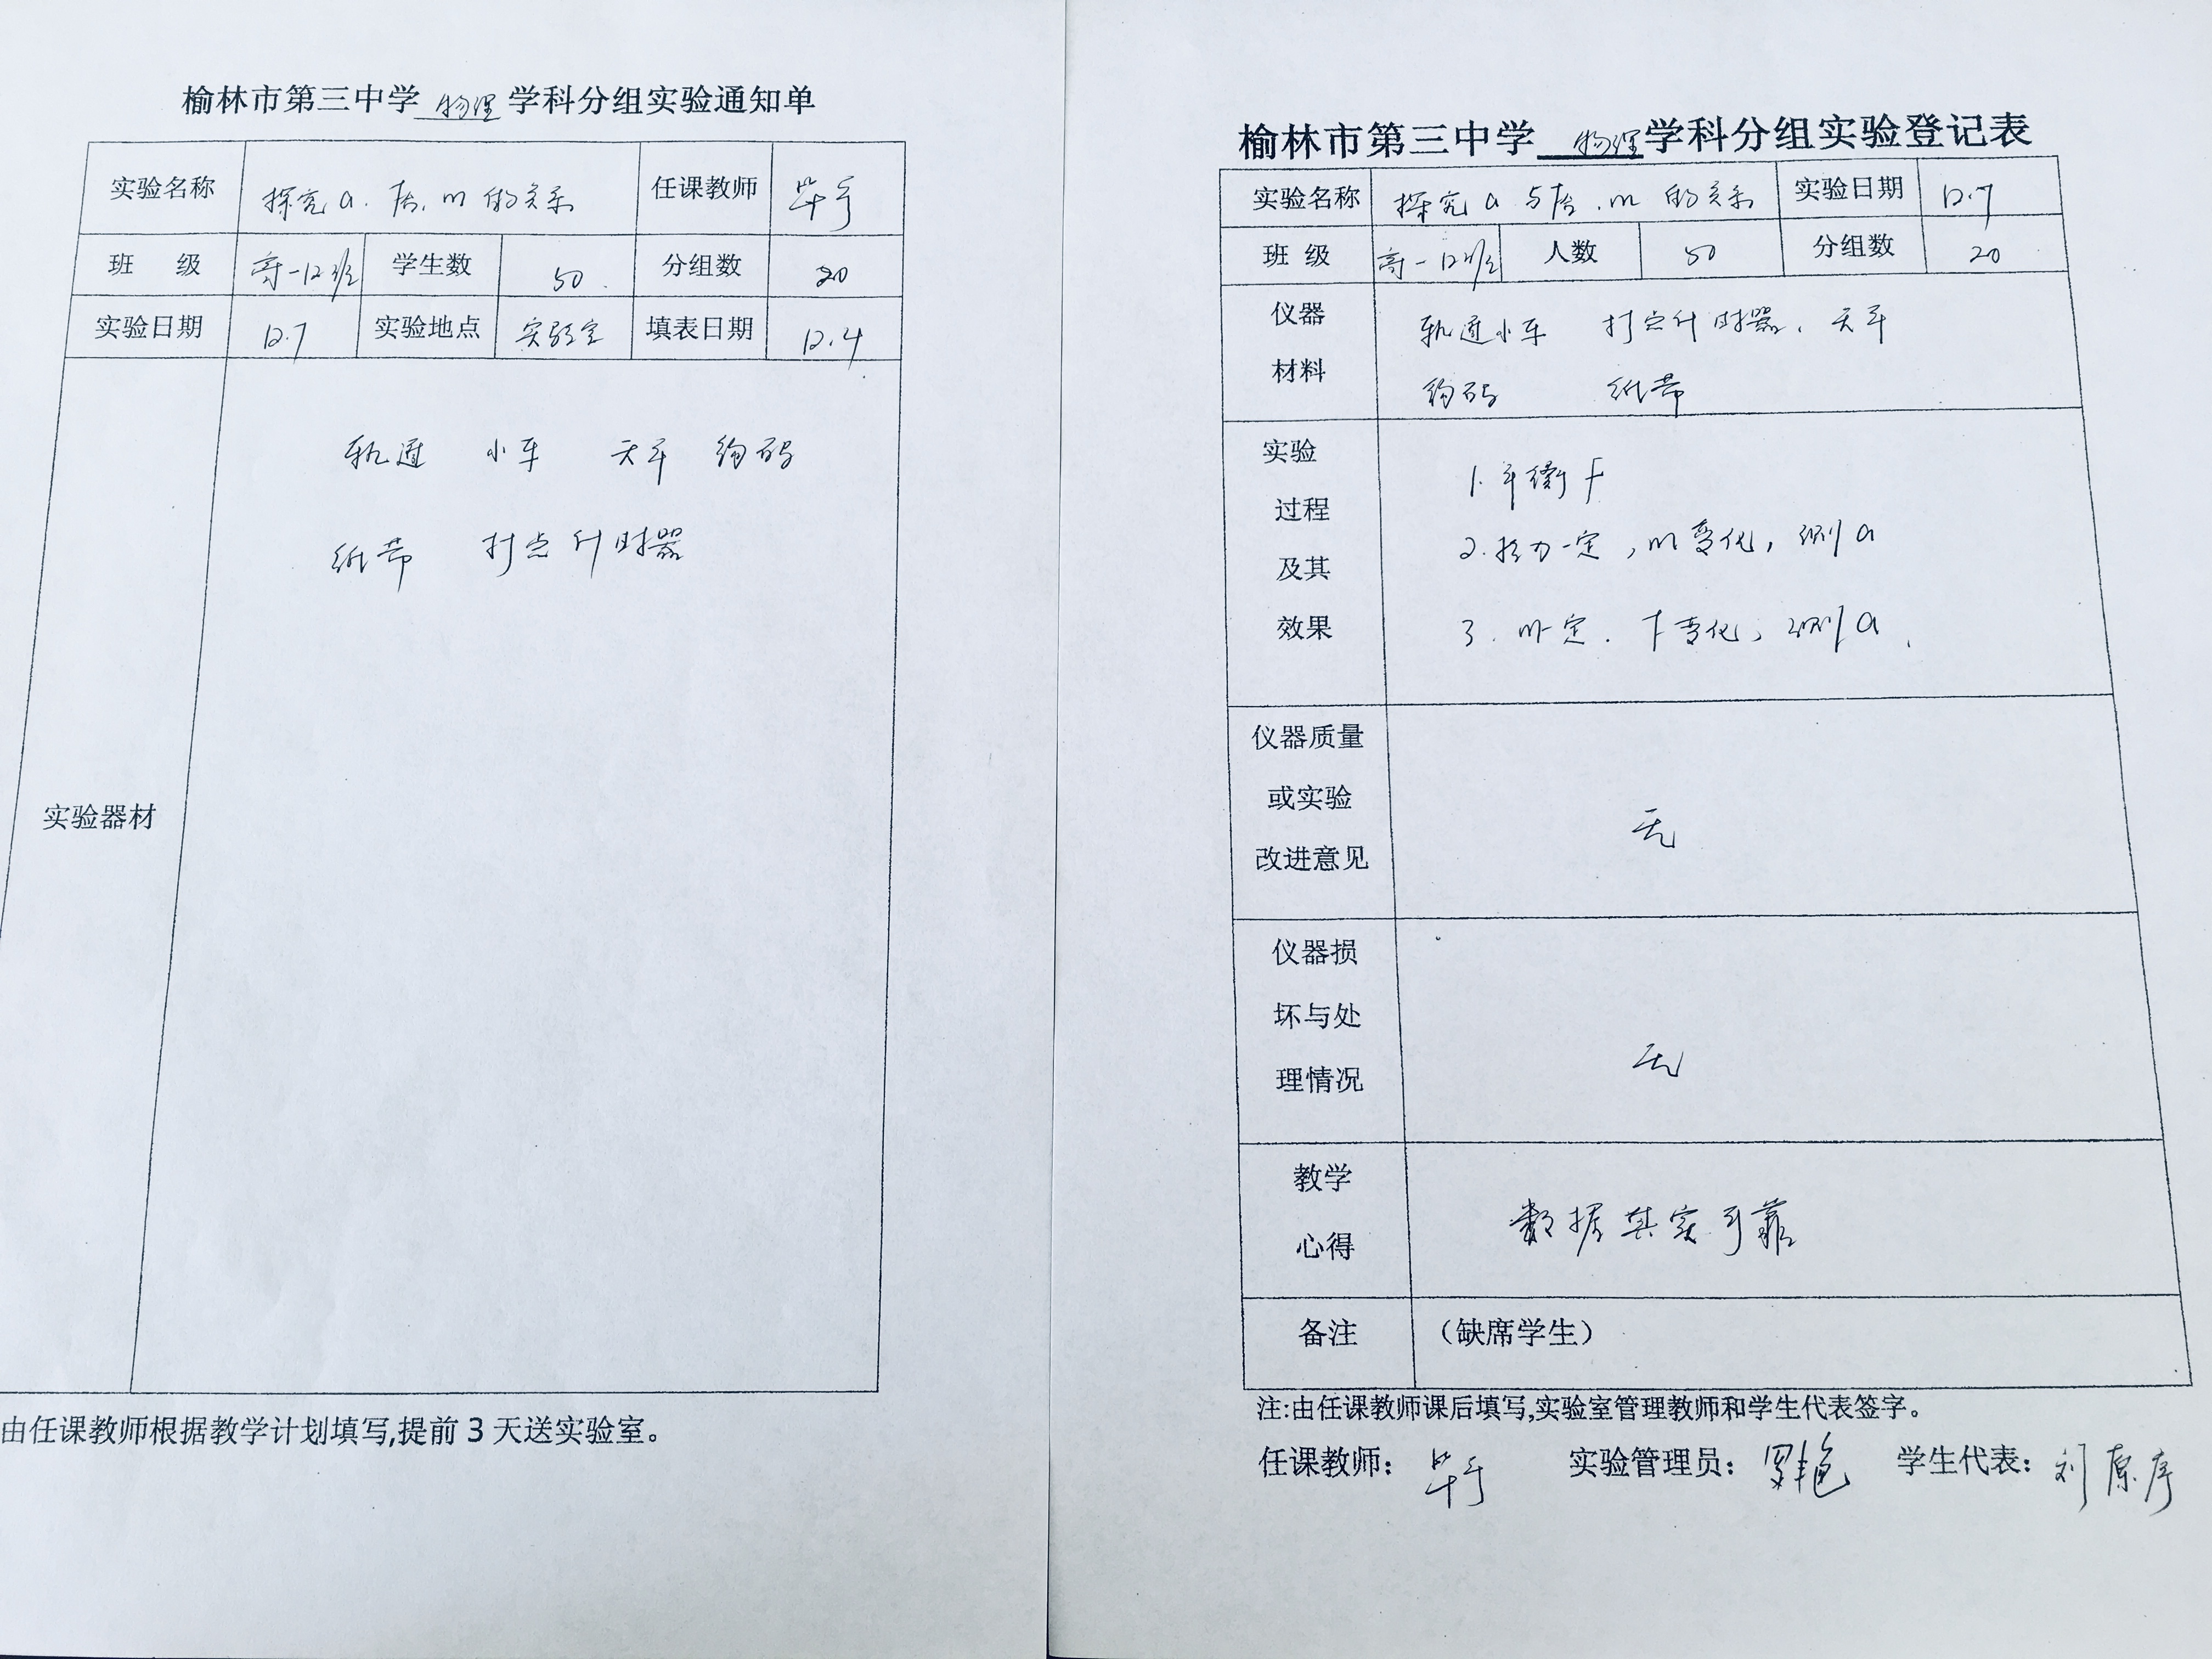 榆林市第三中学 物理 学科分组实验通知单
实验名称 探究a. F合. m的关系 任课教师
班 级 高一12班 学生数 50 分组数 20
实验日期 12.7 实验地点 实验室 填表日期 12.4
实验器材
轨道 小车 天平 钩码
纸带 打点计时器
由任课教师根据教学计划填写,提前 3 天送实验室。
榆林市第三中学 物理 学科分组实验登记表
实验名称 探究a与F合.m的关系 实验日期 12.7
班 级 高一12班 人数 50 分组数 20
仪器
材料
轨道小车 打点计时器. 天平
钩码 纸带
实验
过程
及其
效果
1. 平衡f
2. 拉力一定,m变化,测a
3. m一定. F变化,测a.
仪器质量
或实验
改进意见
无
仪器损
坏与处
理情况
无
教学
心得
数据真实可靠
备注 (缺席学生)
注:由任课教师课后填写,实验室管理教师和学生代表签字。
任课教师: 实验管理员: 学生代表: